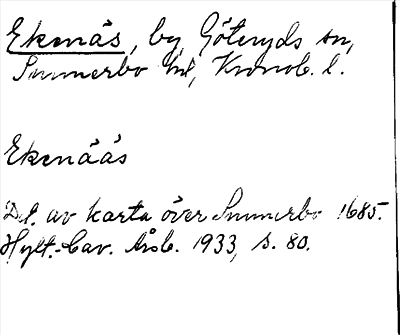 Ekenäs, by, Göteryds sn,
Sunnerbo hd, Kronob. l.
Ekenäås
D.l. av karta över Sunnerbo 1685.
Hylt.-Cav. Årsb. 1933, s. 80.